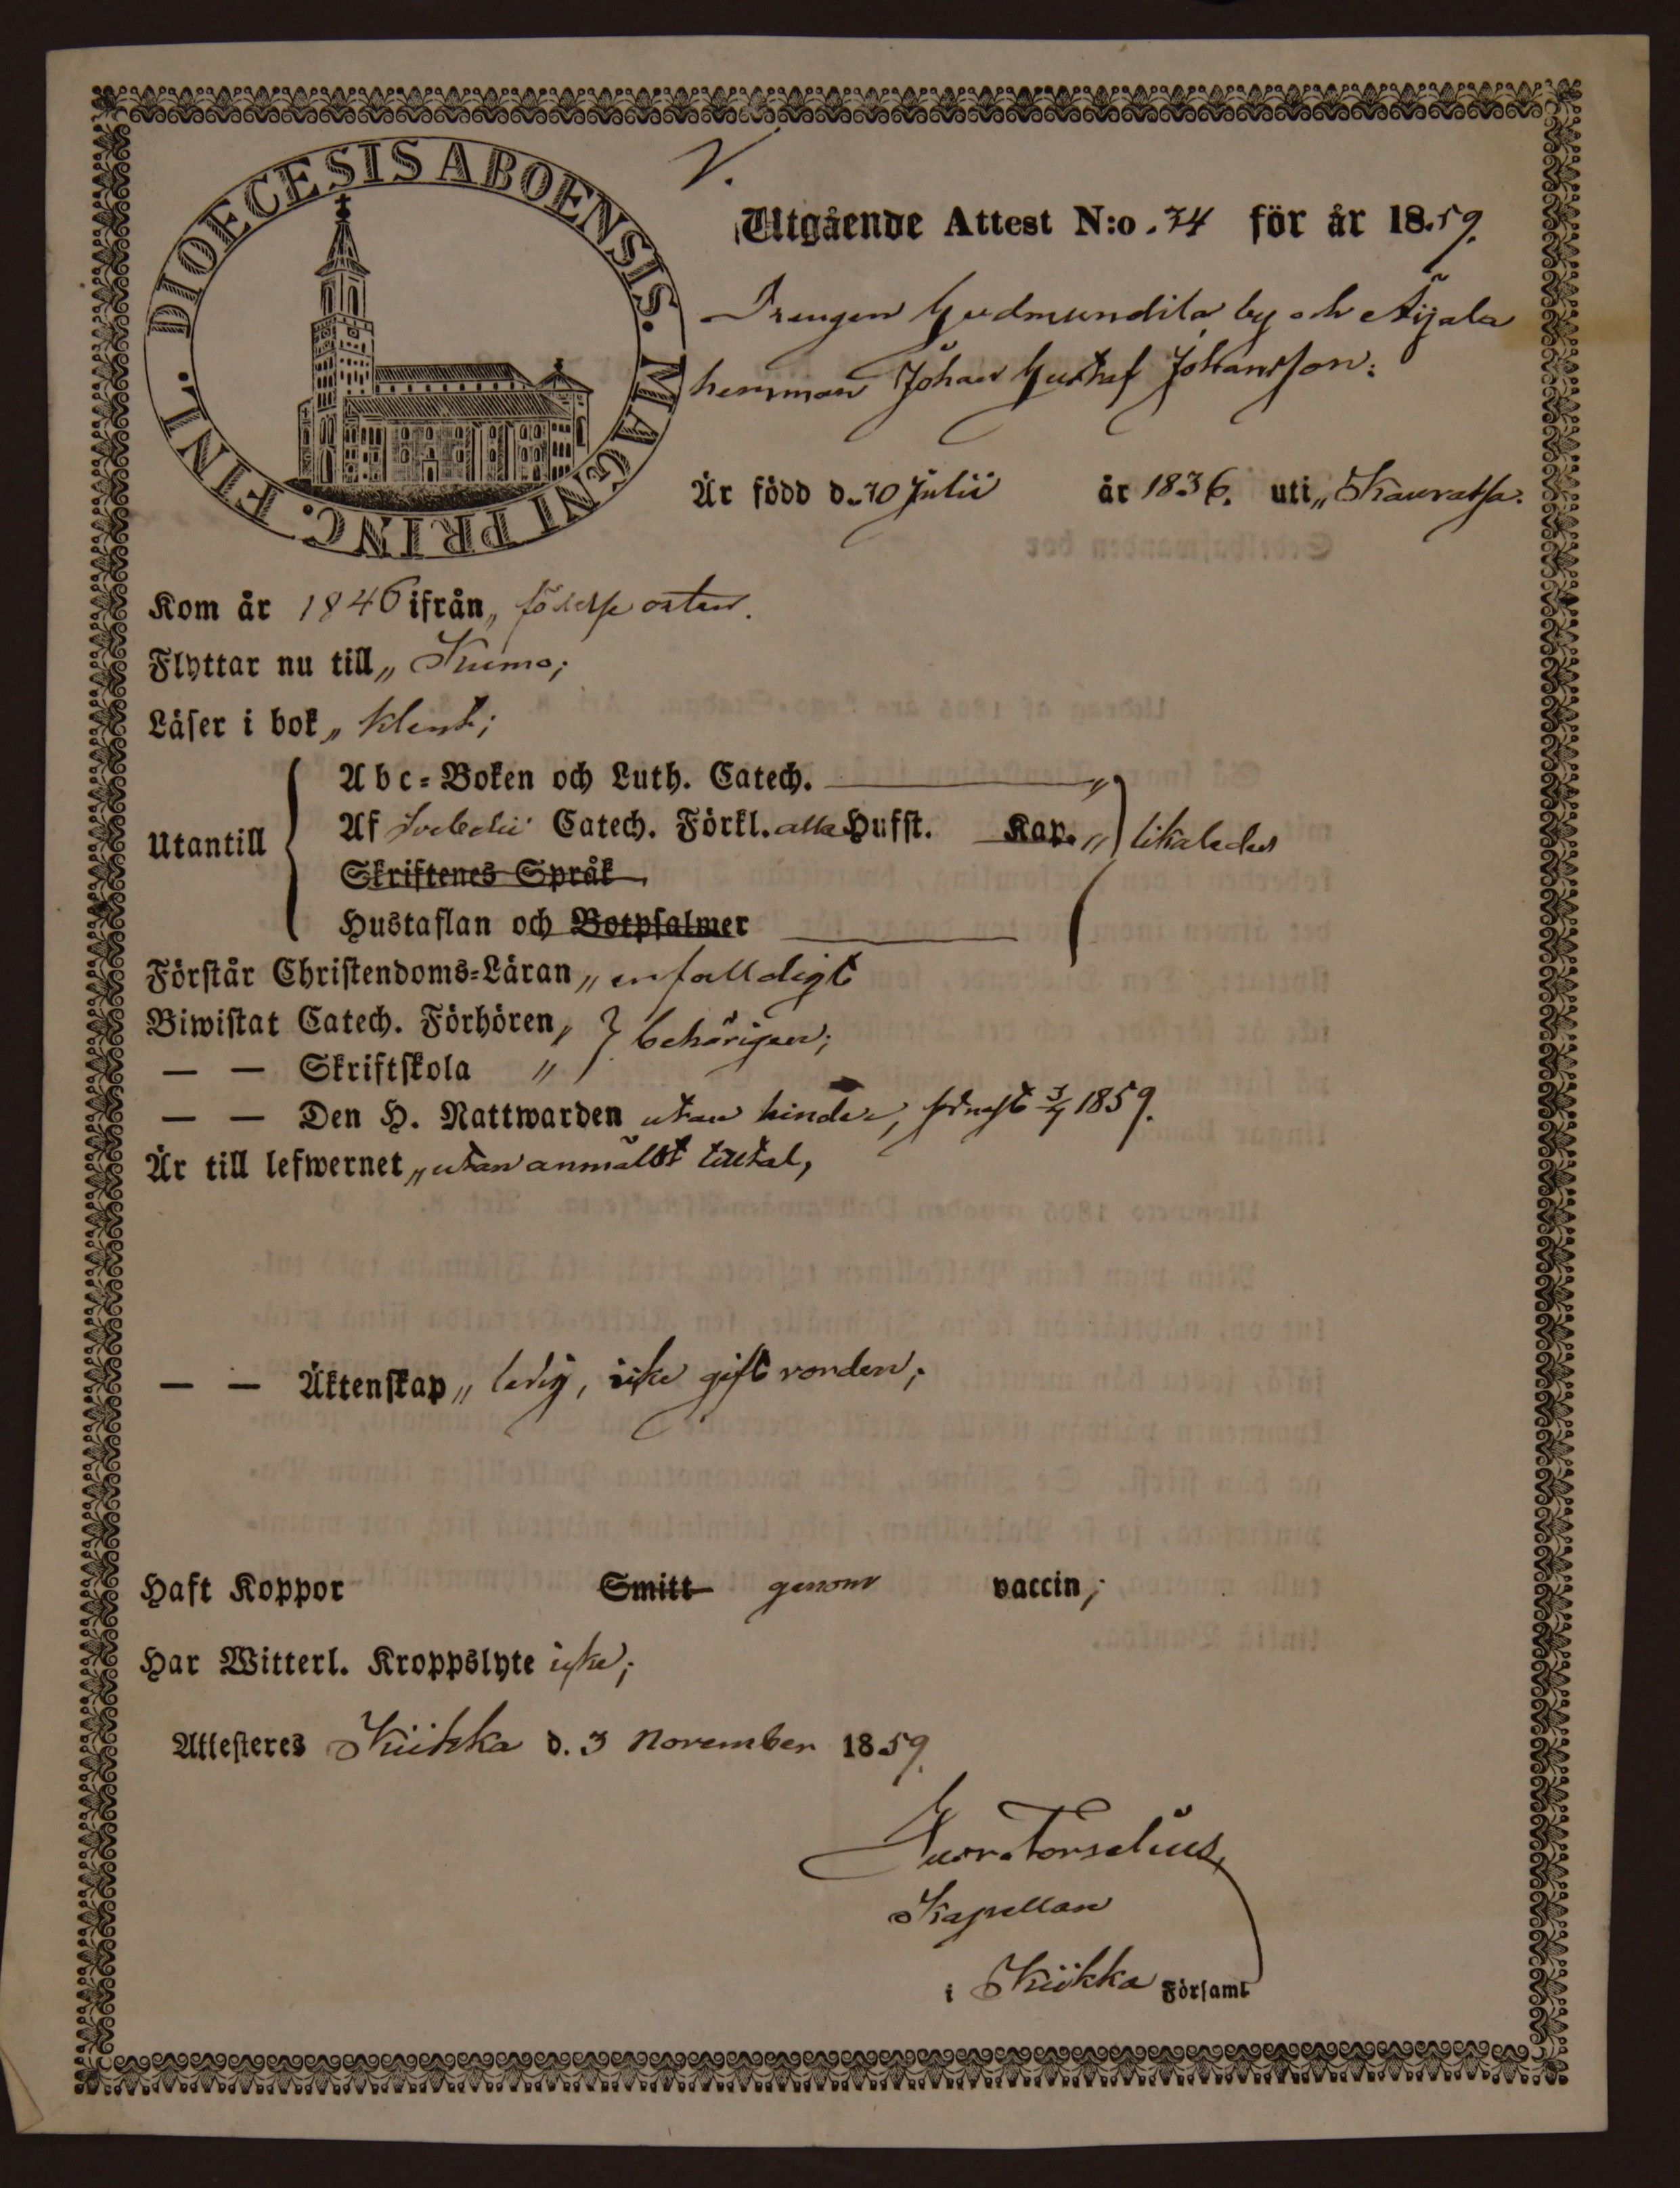 DIOECESIS ABOENSIS. MAGNI PRINC. FINL.
V.
Utgående Attest N:o. 34 för år 1859.
Drengen Gudmundila by och Äijala
hemman Johan Gustaf Johansson:
Är född d. 30 Julii år 1836. uti „ Kauvatsa.
Kom år 1846 ifrån „ födelse orten.
Flyttar nu till „ Kumo;
Läser i bok „ klent;
Utantill
Abc-Boken och Luth. Catech. „
Af Svebelii Catech. Förkl. alla Hufst. Kap. „ likaledes
Skriftenes Språk
Hustaflan och Botpsalmer
Förstår Christendoms-Läran „ enfalldigt
Biwistat Catech. Förhören „ behörigen;
— — Skriftskola „
— — Den H. Nattwarden utan hinder, sednast 3/4 1859.
Är till lefwernet „ utan anmäldt tilltal,
— — Äktenskap „ ledig, icke gift vorden;
Haft Koppor Smitt genom vaccin;
Har Witterl. Kroppslyte icke;
Attesteres Kiikka d. 3 November 1859.
Torselius
Kapellan
i Kiikka Församl